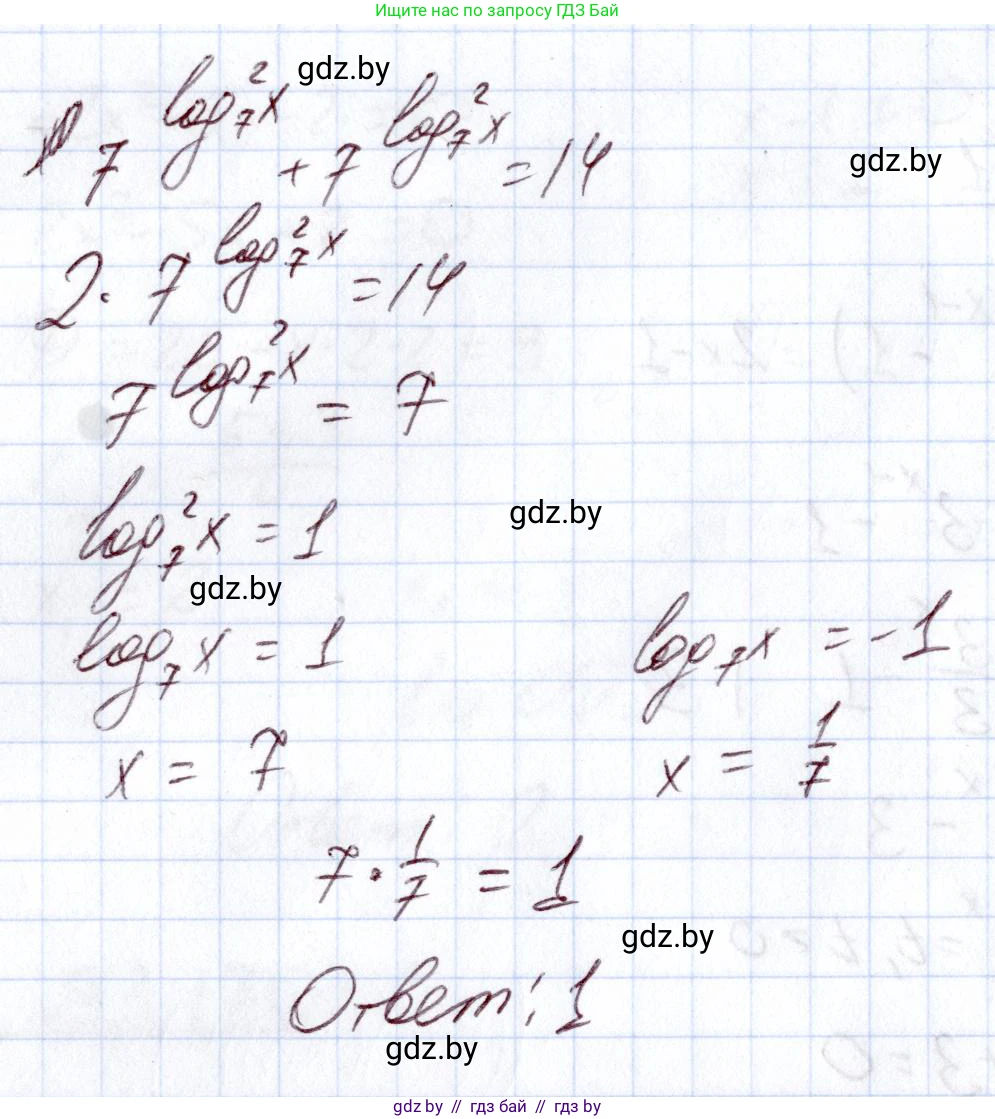 Ищите нас по запросу ГДЗ Бай
7^{log_7^2 x} + 7^{log_7^2 x} = 14
gdz.by
gdz.by
2 · 7^{log_7^2 x} = 14
7^{log_7^2 x} = 7
log_7^2 x = 1
gdz.by
gdz.by
log_7 x = 1 log_7 x = -1
x = 7 x = 1/7
7 · 1/7 = 1
gdz.by
Ответ: 1
gdz.by
gdz by // гдз бай // gdz by